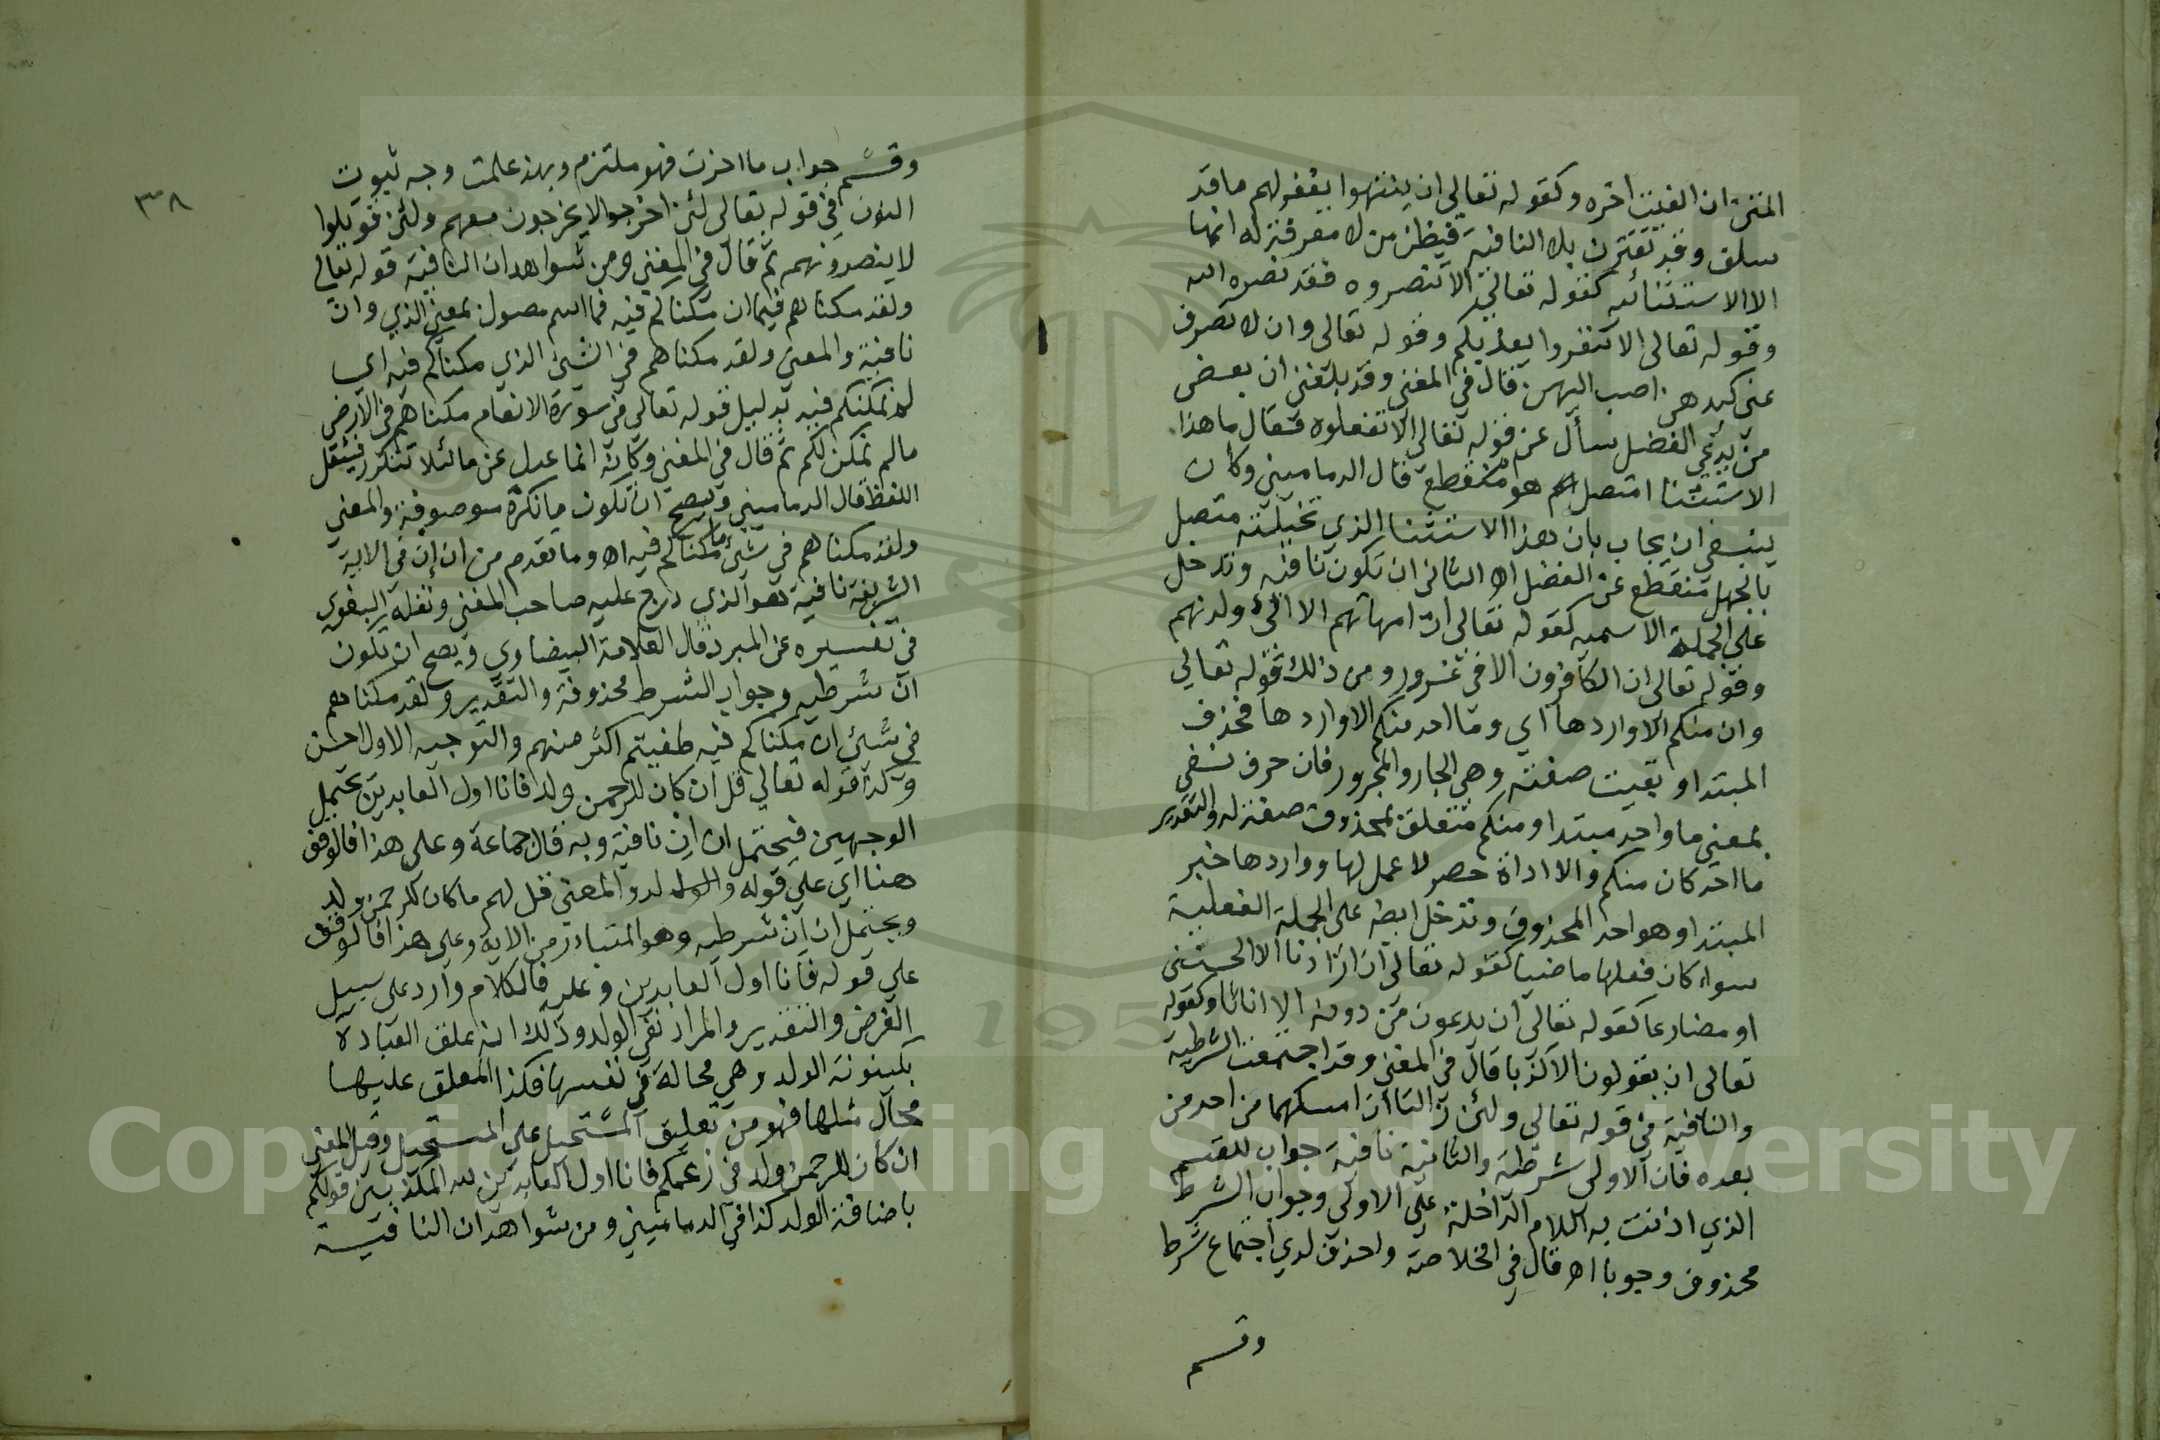 المتن ان الغيت اخره وكقوله تعالى ان ينتهوا يغفر لهم ما قد
سلف وقد تقترن بلا النافية فيظن من لا معرفة له انها
الا الاستثنائيه كقوله تعالى الا تنصروه فقد نصره الله
وقوله تعالى الا تنفروا يعذبكم وقوله تعالى وان لا تصرف
عني كيدهن اصب اليهن قال في المغني وقد بلغني ان بعض
من يدعي الفضل سأل عن قوله تعالى الا تفعلوه فقال ما هذا
الاستثنا امتصل ام هو منقطع قال الدماميني وكان
ينبغي ان يجاب بان هذا الاستثنا الذي تخيلته متصل
بالجهل منقطع عن الفضل اه الثاني ان تكون نافيه وتدخل
على الجملة الاسميه كقوله تعالى ان امهاتهم الا اللائي ولدنهم
وقوله تعالى ان الكافرون الا في غرور ومن ذلك قوله تعالي
وان منكم الا واردها اي وما احد منكم الا واردها فحذف
المبتدا وبقيت صفته وهي الجار والمجرور فان حرف نفي
بمعنى ما واحد مبتدا ومنكم متعلق بمحذوف صفة له والتقدير
ما احد كان منكم والا اداة حصر لا عمل لها وواردها خبر
المبتدا وهو احد المحذوف وتدخل ايضا على الجملة الفعلية
سواء كان فعلها ماضيا كقوله تعالى ان اردنا الا الحسنى
او مضارعا كقوله تعالى ان يدعون من دونه الا اناثا وكقوله
تعالى ان يقولون الا كذبا قال في المغني وقد اجتمعت الشرطية
والنافية في قوله تعالى ولئن زالتا ان امسكهما من احد من
بعده فان الاولى شرطية والثانية نافية جواب للقسم
الذي اذنت به اللام الداخلة على الاولى وجواب الشرط
محذوف وجوبا اه قال في الخلاصة واحذف لدي اجتماع شرط
وقسم
٣٨
وقسم جواب ما اخرت فهو ملتزم وبهذ علمت وجه ثبوت
النون في قوله تعالى لئن اخرجوا لا يخرجون معهم ولئن قوتلوا
لا ينصرونهم ثم قال في المغني ومن شواهد ان النافية قوله تعالى
ولقد مكناهم فيما ان مكناكم فيه فما اسم موصول بمعني الذي وان
نافية والمعنى ولقد مكناهم في الشيئ الذي مكناكم فيه اي
لم نمكنكم فيه بدليل قوله تعالى في سورة الانعام مكناهم في الارض
مالم نمكن لكم ثم قال في المغني وكانه انما عدل عن ما لئلا تتكرر فيثقل
اللفظ قال الدماميني ويصح ان تكون ما نكرة موصوفة والمعني
ولقد مكناهم في شيئ ما مكناكم فيه اه وما تقدم من ان إن في الاية
الشريفة نافية هو الذي درج عليه صاحب المغني ونقله البغوى
في تفسيره عن المبرد قال العلامة البيضاوي ويصح ان تكون
ان شرطيه وجواب الشرط محذوفة والتقدير ولقد مكناهم
في شيئ ان مكناكم فيه طغيتم اكثر منهم والتوجيه الاول احسن
وكذا قوله تعالي قل ان كان للرحمن ولد فانا اول العابدين يحتمل
الوجهين فيحتمل ان ان نافية وبه قال جماعة وعلى هذا فالوقف
هنا اي علي قوله ولد والمعنى قل لهم ما كان للرحمن ولد
ويحتمل ان ان شرطيه وهو المتبادر من الاية وعلى هذا فالوقف
علي قوله فانا اول العابدين وعليه فالكلام وارد على سبيل
الفرض والتقدير والمراد نفي الولد وذلك انه علق العبادة
بكينونة الولد وهي محالة في نفسها فكذا المعلق عليها
محال مثلها فهو من تعليق المستحيل علي المستحيل وقيل المعنى
ان كان للرحمن ولد في زعمكم فانا اول العابدين لله المكذبين قولكم
باضافة الولد كذا في الدماميني ومن شواهد ان النافية
Copyright © King Saud University
195